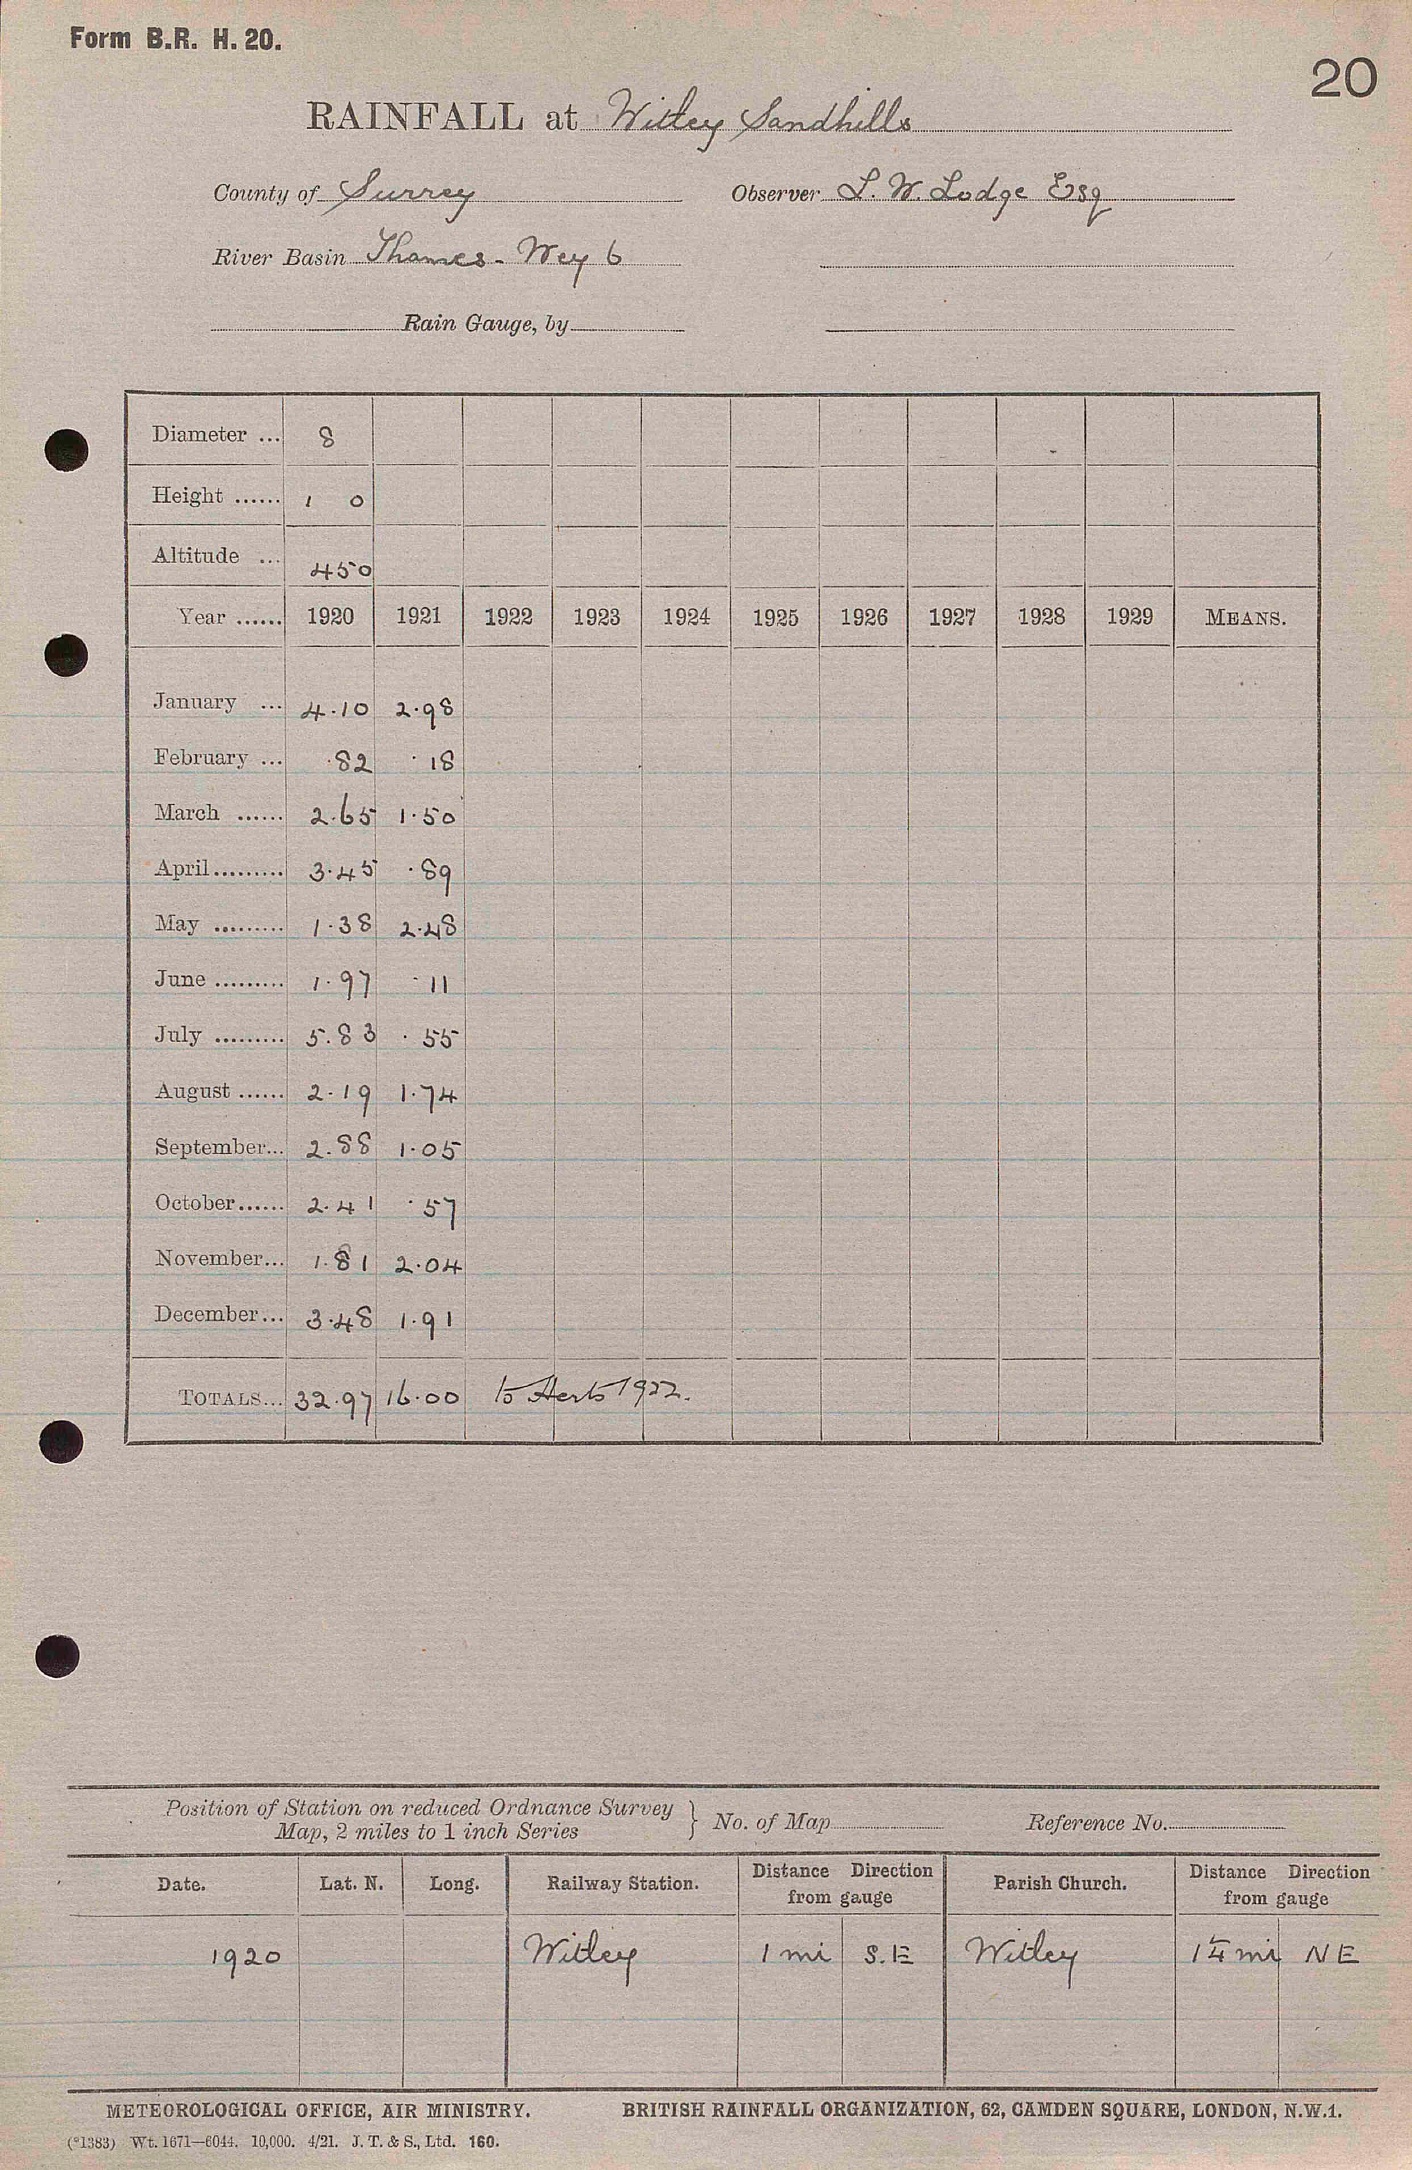 Form B.R. H. 20.
20
RAINFALL at Witley Sandhills
County of Surrey Observer L. W. Lodge Esq
River Basin Thames - Wey 6
Rain Gauge, by
Diameter ... 8
Height ...... 1 0
Altitude ... 450
Year ...... 1920 1921 1922 1923 1924 1925 1926 1927 1928 1929 MEANS.
January ... 4.10 2.98
February ... .82 .18
March ...... 2.65 1.50
April......... 3.45 .89
May ......... 1.38 2.48
June ......... 1.97 .11
July ......... 5.83 .55
August ...... 2.19 1.74
September... 2.88 1.05
October...... 2.41 .57
November... 1.81 2.04
December... 3.48 1.91
TOTALS... 32.97 16.00 to Herts 1922.
Position of Station on reduced Ordnance Survey
Map, 2 miles to 1 inch Series } No. of Map Reference No.
Date. Lat. N. Long. Railway Station. Distance Direction from gauge Parish Church. Distance Direction from gauge
1920 Witley 1 mi S.E Witley 1¼ mi N E
METEOROLOGICAL OFFICE, AIR MINISTRY. BRITISH RAINFALL ORGANIZATION, 62, CAMDEN SQUARE, LONDON, N.W.1.
(*1383) Wt. 1671—6044. 10,000. 4/21. J. T. & S., Ltd. 160.